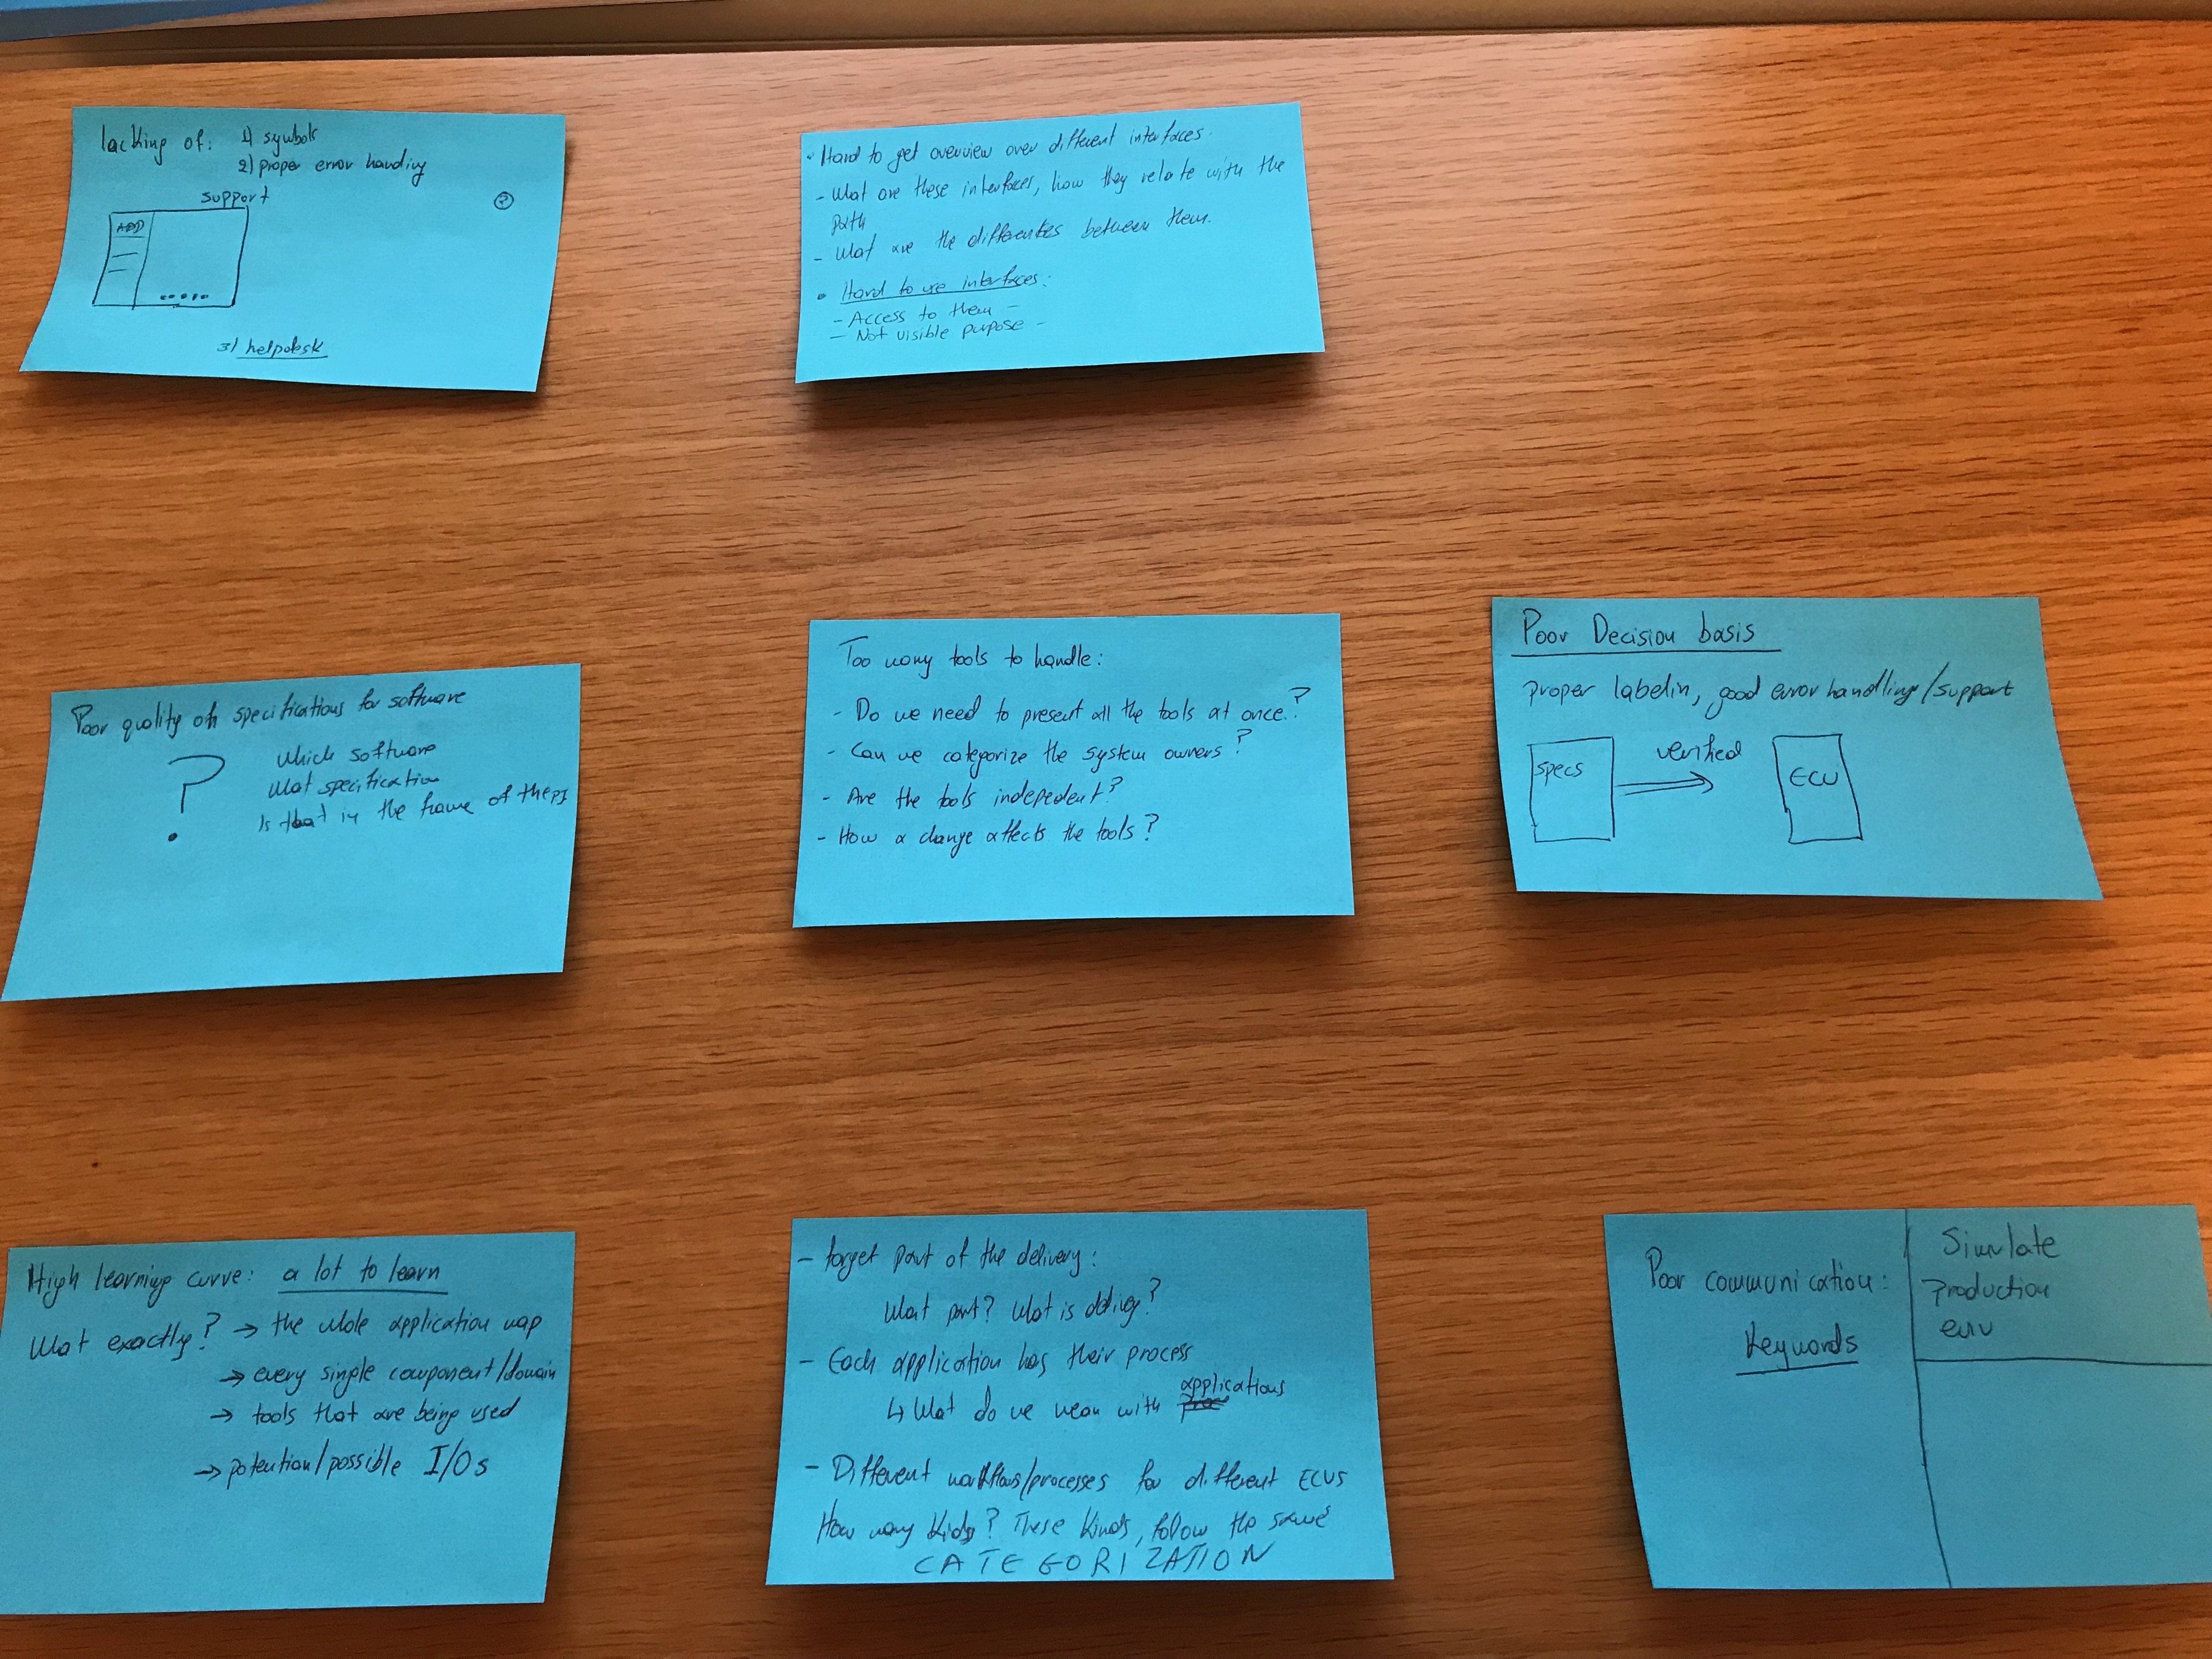 lacking of: 1) symbols
2) proper error handing
support
ADD
?
3) helpdesk
• Hard to get overview over different interfaces.
- What are these interfaces, how they relate with the
path
- What are the differentes between them.
• Hard to use interfaces:
- Access to them -
- Not visible purpose -
Poor quality on specifications for software
?
which software
What specification
Is that in the frame of the
Too many tools to handle:
- Do we need to present all the tools at once?
- Can we categorize the system owners?
- Are the tools indepedent?
- How a change affects the tools?
Poor Decision basis
proper labelin, good error handling/support
specs
verified
ECU
High learning curve: a lot to learn
What exactly? → the whole application map
→ every single component/domain
→ tools that are being used
→ potention/possible I/Os
- forget part of the delivery:
What part? What is delivey?
- Each application has their process
applications
↳ What do we mean with
- Different workflows/processes for different ECUs
How many kids? These kinds, follow the same
CATEGORIZATION
Poor communication:
Keywords
Simulate
Production
env